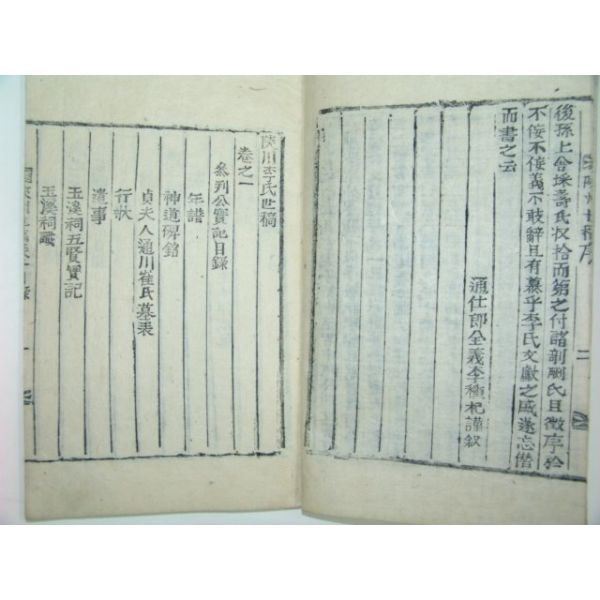 後孫上舍埰壽氏收拾而第之付諸剞劂氏且徵序於
不佞不佞義不敢辭且有慕乎李氏文獻之盛遂忘僭
而書之云
通仕郎全義李種杞謹叙
二
陜川李氏世稿
卷之一
參判公實記目錄
年譜
神道碑銘
貞夫人通川崔氏墓表
行狀
遺事
玉溪祠五賢實記
玉溪祠